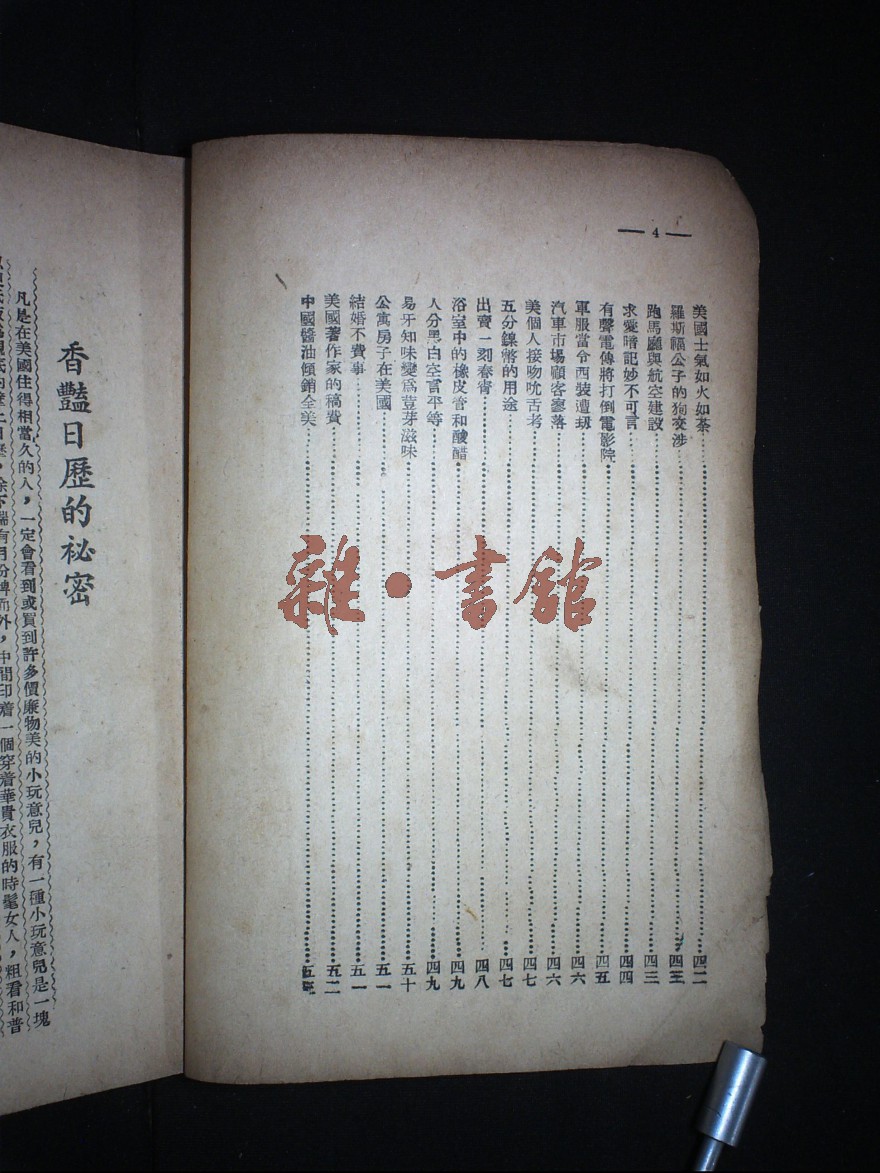 — 4 —
美國士氣如火如荼 四二
羅斯福公子的狗交涉 四三
跑馬廳與航空建設 四三
求愛暗記妙不可言 四四
有聲電傳將打倒電影院 四五
軍服當令西裝遭刼 四六
汽車市場顧客寥落 四六
美個人接吻吮舌考 四七
五分鎳幣的用途 四七
出賣一刻春宵 四八
浴室中的橡皮管和酸醋 四九
人分黑白空言平等 四九
易牙知味變爲荳芽滋味 五十
公寓房子在美國 五一
結婚不費事 五一
美國著作家的稿費 五二
中國醬油傾銷全美
雜·書館
香豔日歷的祕密
凡是在美國住得相當久的人,一定會看到或買到許多價廉物美的小玩意兒,有一種小玩意兒是一塊
中間印着一個穿着華貴衣服的時髦女人,粗看和普